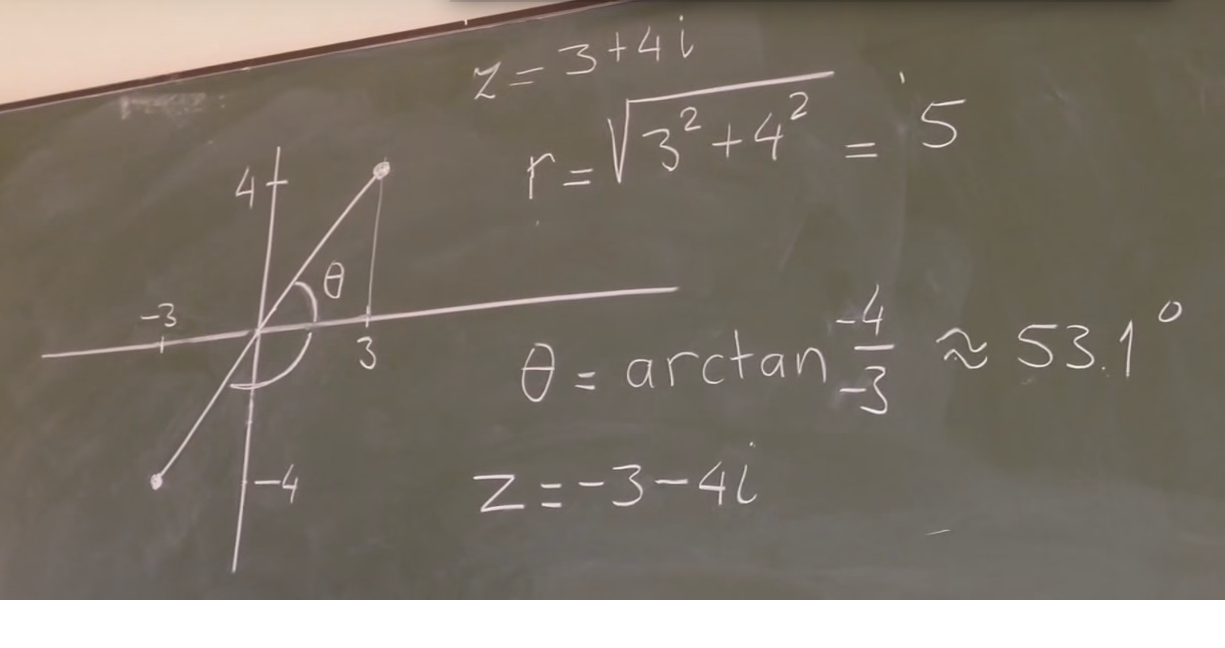 z = 3+4i
r = √(3²+4²) = 5
4
θ
-3
3
θ = arctan -4/-3 ≈ 53.1°
-4
z = -3-4i